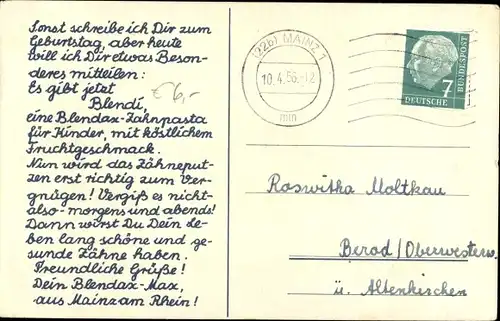 Sonst schreibe ich Dir zum
Geburtstag, aber heute
will ich Dir etwas Beson-
deres mitteilen:
Es gibt jetzt
Blendi,
eine Blendax-Zahnpasta
für Kinder, mit köstlichem
Fruchtgeschmack.
Nun wird das Zähneput-
zen erst richtig zum Ver-
gnügen! Vergiß es nicht-
also-morgens und abends!
Dann wirst Du Dein Le-
ben lang schöne und ge-
sunde Zähne haben.
Freundliche Grüße!
Dein Blendax-Max,
aus Mainz am Rhein!
€ 6,-
(22b) MAINZ 1
10.4.56.-12
mm
7
DEUTSCHE
BUNDESPOST
Roswitha Moltkau
Berod/Oberwesterw.
ü. Altenkirchen